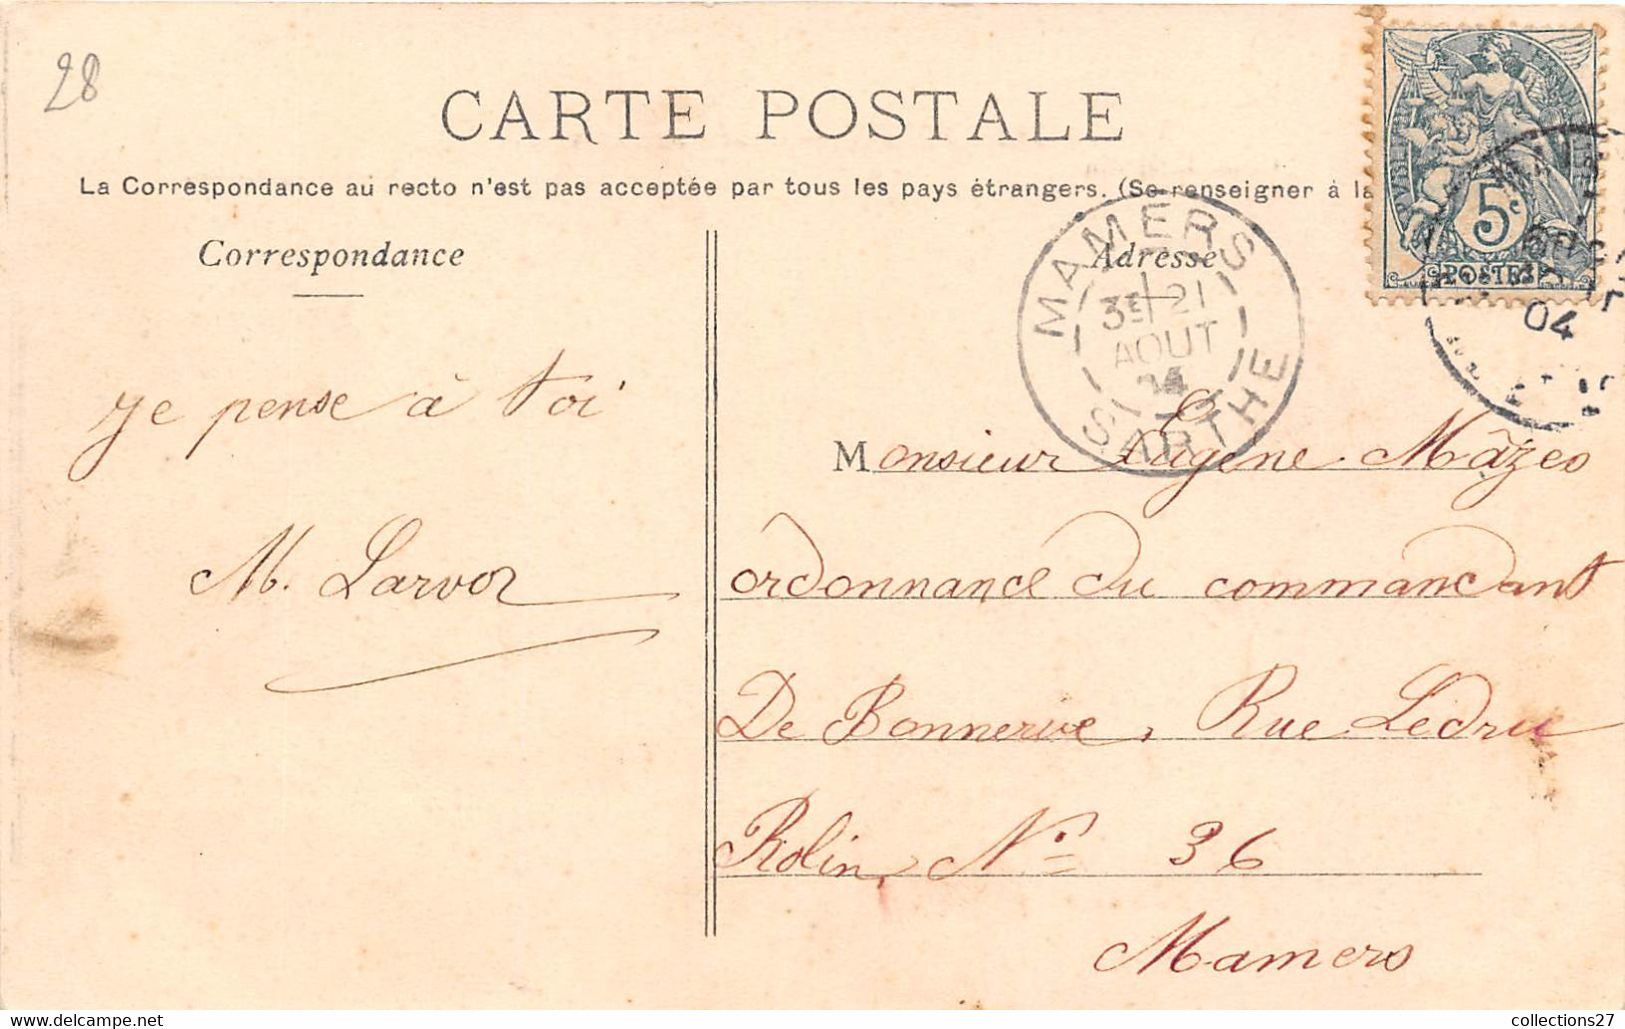 28
CARTE POSTALE
La Correspondance au recto n'est pas acceptée par tous les pays étrangers. (Se renseigner à la
Correspondance
Adresse
5c
POSTES
MAMERS
3E 21
AOUT
04
SARTHE
04
je pense à toi
M. Larvor
Monsieur Eugène Mâzeo
ordonnance du commandant
De Bonnerive, Rue Ledru
Rolin, No 36
Mamers
collections27